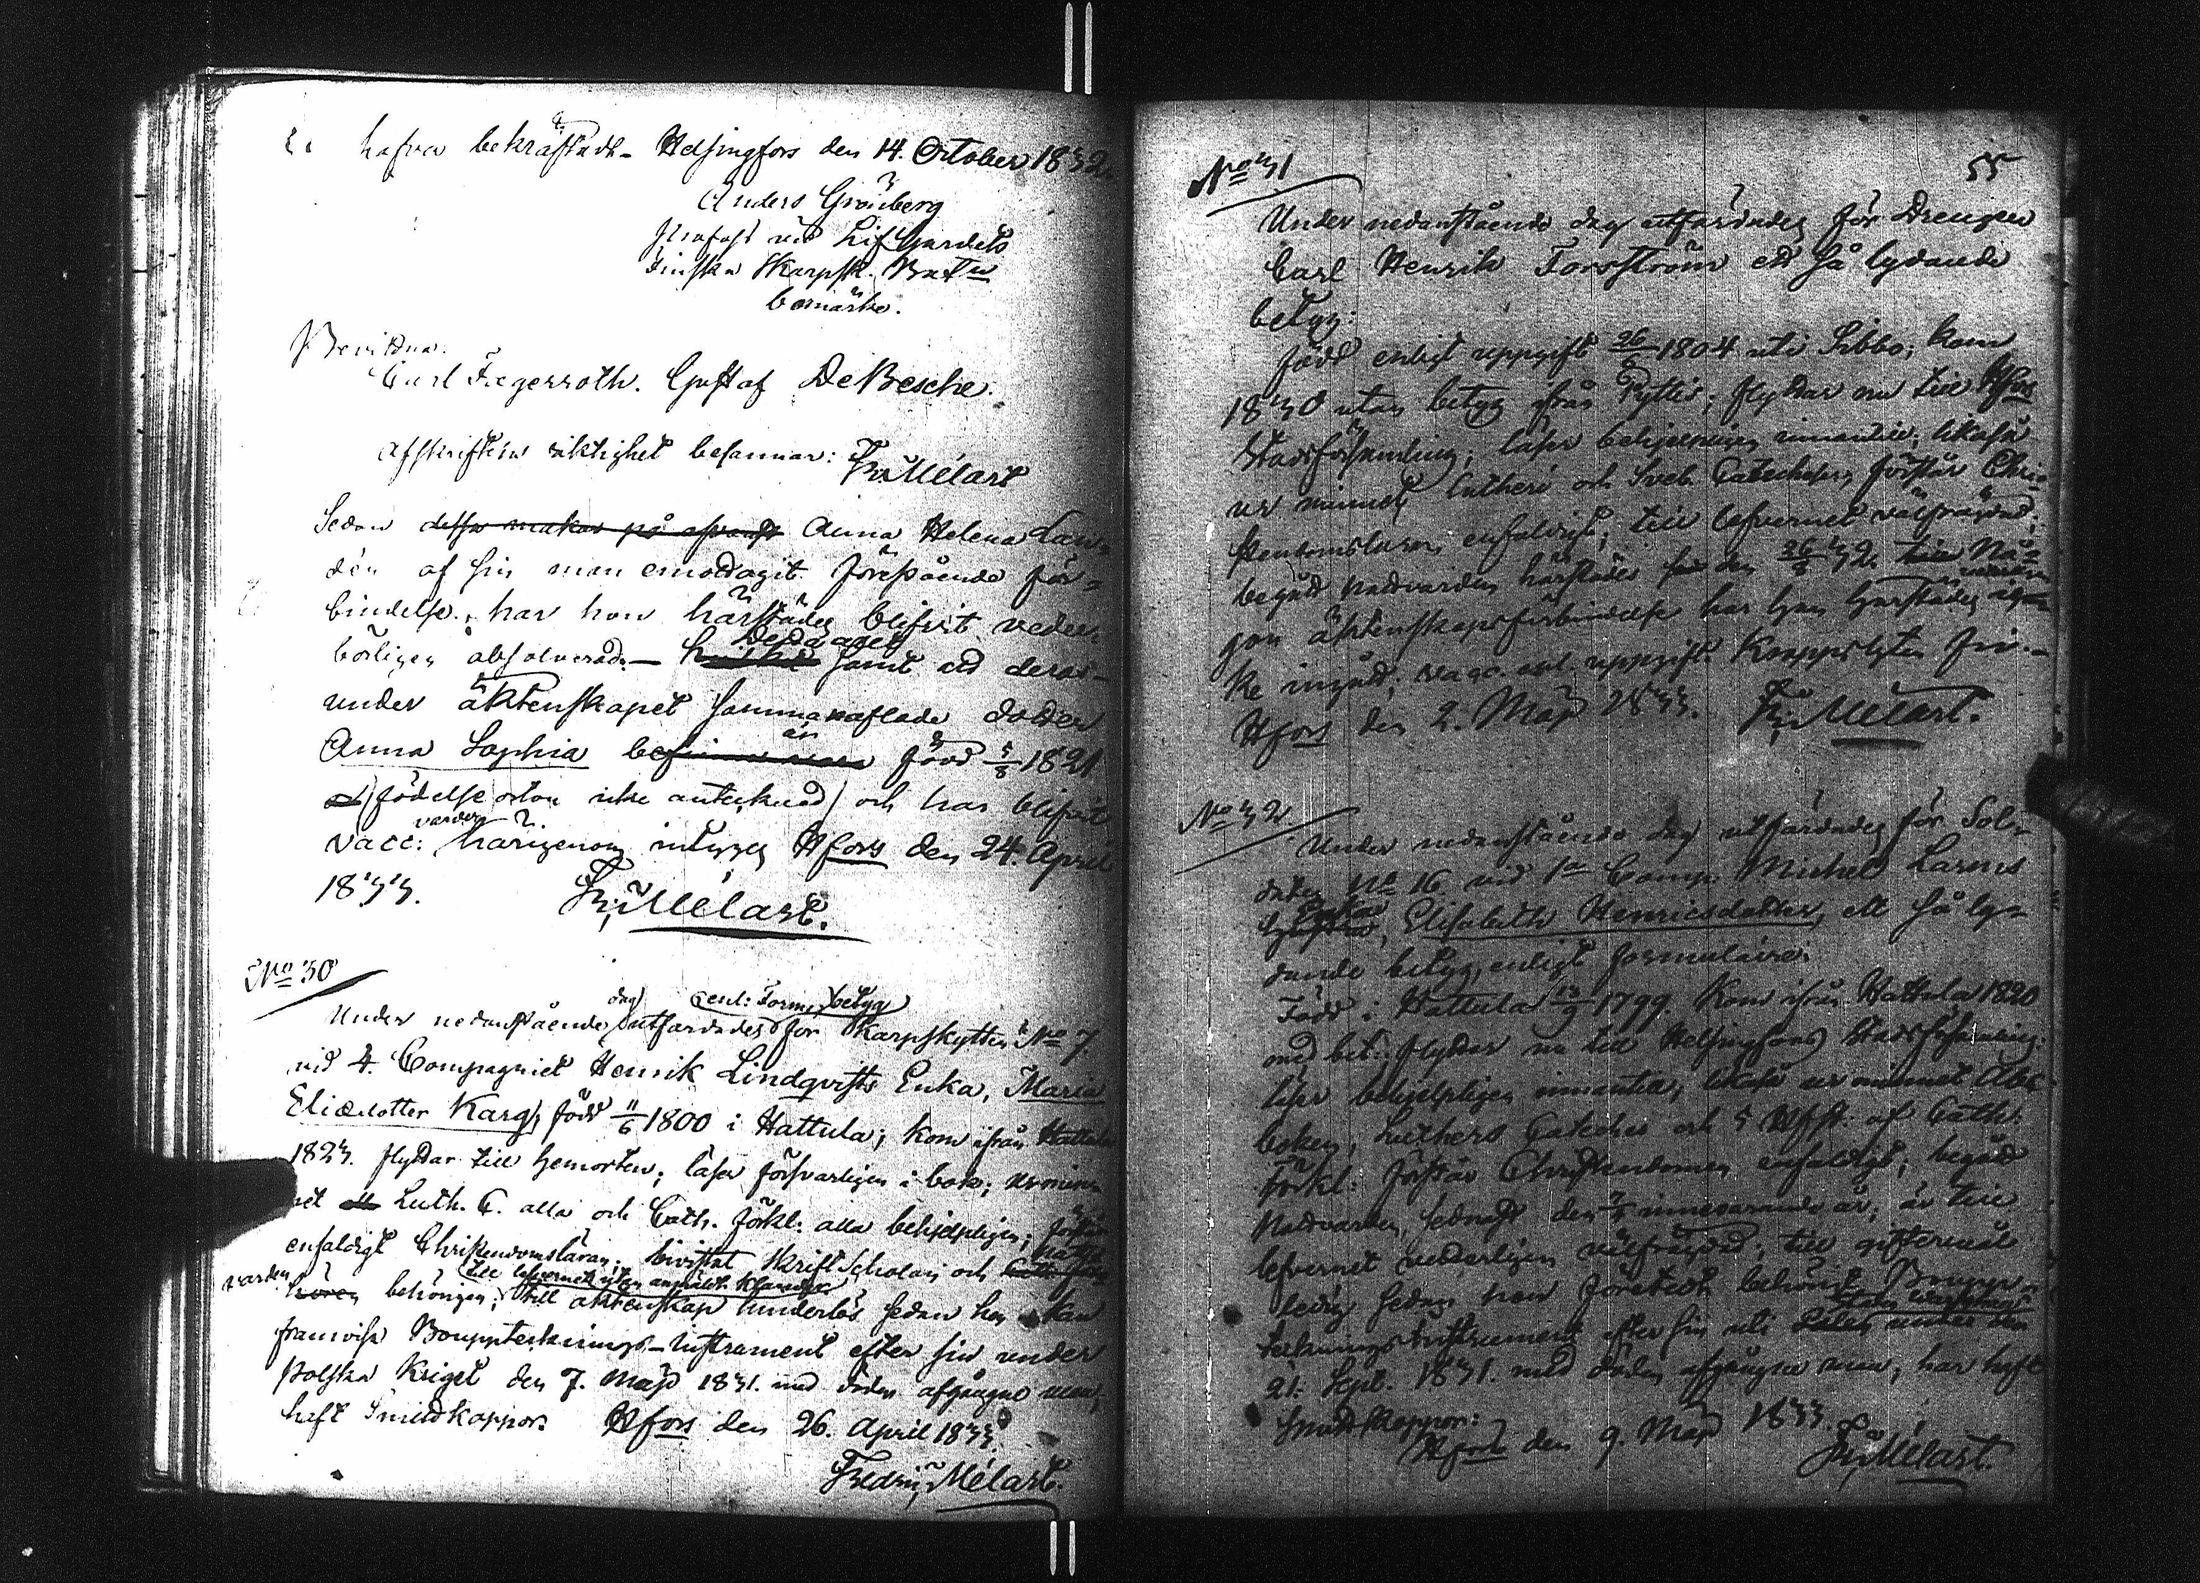 hafva bekräftadt. Helsingfors den 14. October 1832.
Anders Grönberg
Profoss vid Lif Gardets
Finska Skarpsk. Batn
bomärke.
Bevittna:
Carl Fagerroth. Gustaf DeBesche.
Afskriftens riktighet besannar:
Fr: Mélart
Sedan dessa makar på Anna Helena Lan-
dén af sin man emottagit förestående för-
bindelse, har hon härstädes blifvit veder-
Desslikes
börligen absolverad. — samt att deras
under äktenskapet sammanaflade dotter
är
Anna Sophia befinnes vara född 5/8 1821
(födelse orten icke antecknad) och har blifvit
varder
vacc: härigenom intygas Hfors den 24. April
1833. Fr: Mélart.
No 30
dag enl: Form. betyg
Under nedanstående utfärdades för Skarpskytten No 7.
vid 4. Compagniet Henrik Lindqvists Enka, Maria
Eliædotter Karg, född 11/6 1800 i Hattula; kom ifrån Hattula
1823. flyttar till hemorten; läser försvarligen i bok; ur min-
net Luth. C. alla och Cath. förkl. alla behjelpligen; förstår
enfaldigt Christendomsläran; bivistat Skriftscholan och
till lefvernet utan anmärkt klander
varden behörigen; till äktenskap hinderlös sedan hon kan
framvisa Bouppteknings-Instrument efter sin under
Polska Kriget den 7. Maji 1831. med döden afgångne man,
haft Smittkoppor. Hfors den 26. April 1833.
Fredric Mélart.
55
No 31
Under nedanstående dag utfärdades för Drengen
Carl Henrik Forsström ett så lydande
betyg:
född enligt uppgift 26/6 1804 uti Sibbo; kom
1830 utan betyg från Pyttis; flyttar nu till Hfors
Stadsförsamling; läser behjelpligen innantill; likaså
ur minnet Lutheri och Sveb. Catecheser, förstår Chri-
stendomsläran enfaldigt; till lefvernet välfrägdad;
begått nattvarden härstädes den 26/3 32. Nå-
gon äktenskapsförbindelse har han härstädes
ke ingått; vacc. enl. uppgift. Kroppslyten fri.
Hfors den 2. Maji 1833. Fr: Mélart.
No 32
Under nedanstående dag utfärdades för Sol-
daten No 16 vid 1a Comp. Michel Larms
Enka
Hustru, Elisabeth Henricsdotter, ett så ly-
dande betyg, enligt formulaire:
Född i Hattula 1799. Kom ifrån Hattula 1820
med bet: flyttar nu till Helsingfors Stadsförsamling:
läser behjelpligen innantill; likaså ur minnet Abc-
boken, Luthers Cateches och 5 Hfst. af Cath:
Förkl: förstår Christendomen enfaldigt; begått
Nattvarden sednast den innevarande år; är till
lefvernet vederligen välfrägdad; till giftermål
ledig sedan hon företedt behörigt Bouppt-
teknings Instrument efter sin uti
21. Sept. 1831. med döden afgångna man; har haft
Smittkoppor:
Hfors den 9. Maji 1833.
Fr: Mélart.